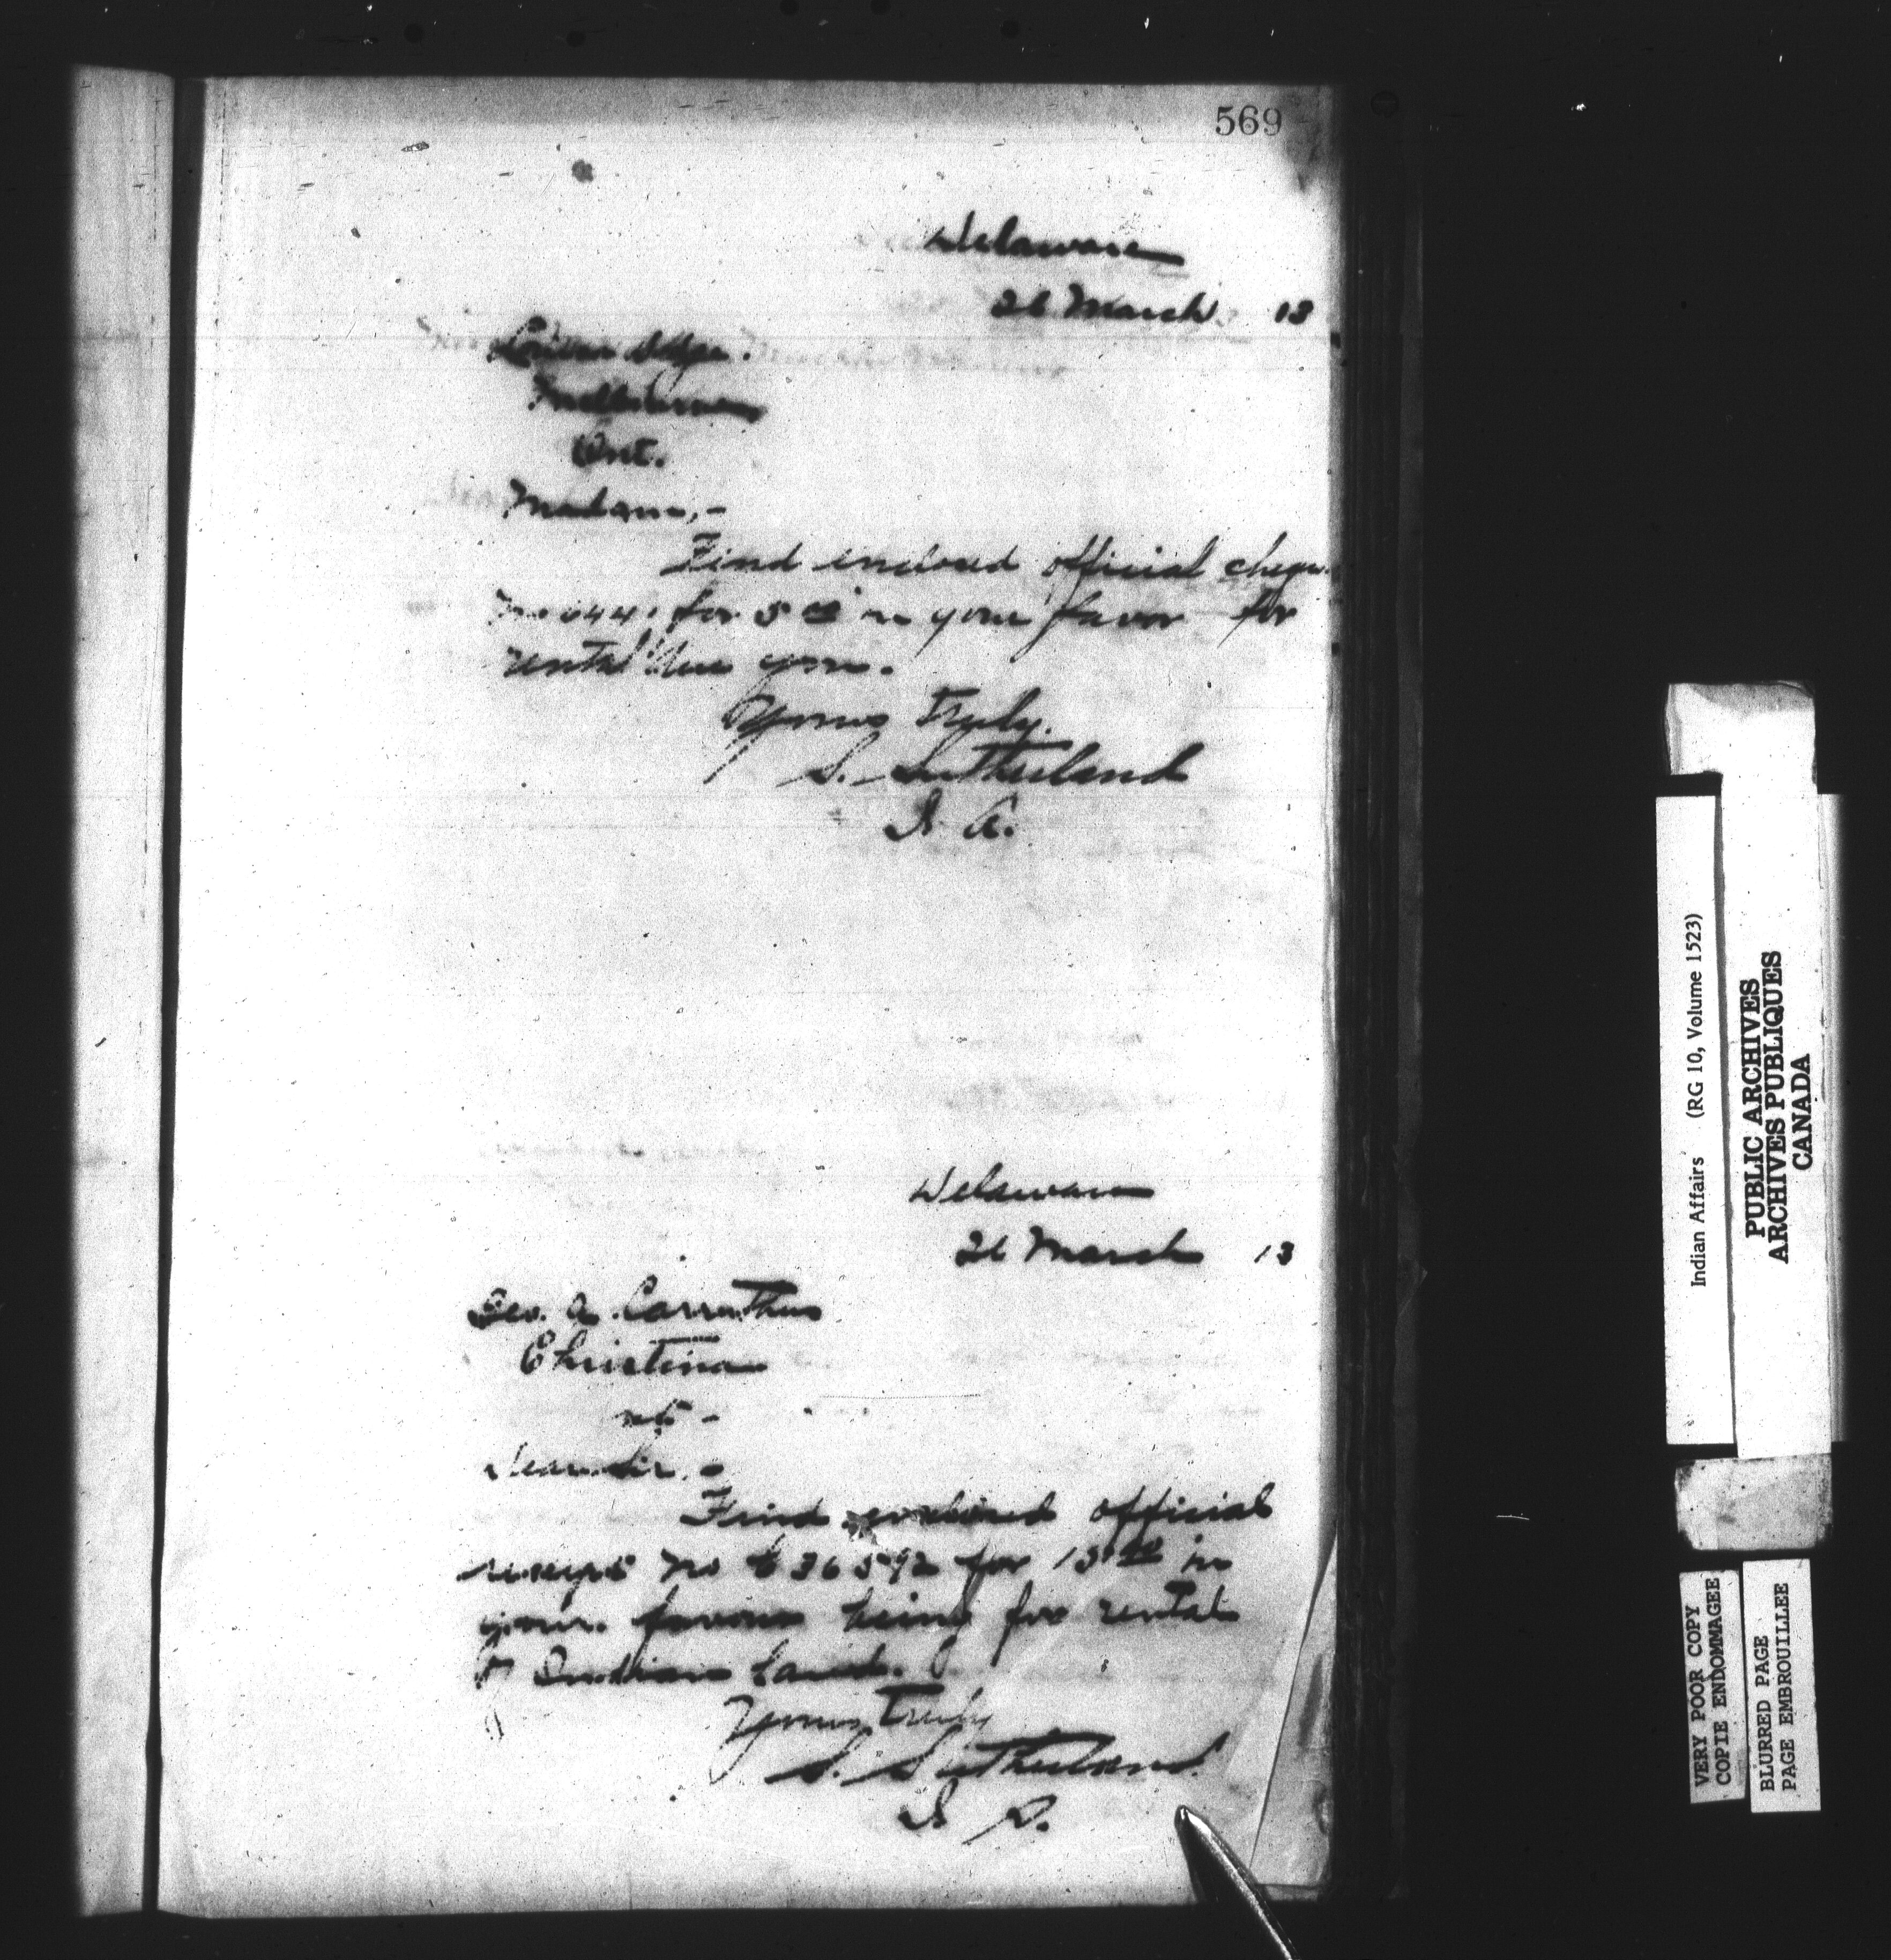 569
Delaware
26 March 13
Melbourne
Ont.
Madam,-
Find enclosed official cheque
No 644 for 5 00 in your favor for
rental due you.
Yours Truly.
S. Sutherland
I. A.
Delaware
26 March 13
Geo. A. Carruthers
Christina
Dear Sir,-
Find enclosed official
receipt No 36592 for 15 00 in
your favour being for rental
of Indian Land.
Yours Truly
S. Sutherland
I A.
Indian Affairs (RG 10, Volume 1523)
PUBLIC ARCHIVES
ARCHIVES PUBLIQUES
CANADA
VERY POOR COPY
COPIE ENDOMMAGEE
BLURRED PAGE
PAGE EMBROUILLEE